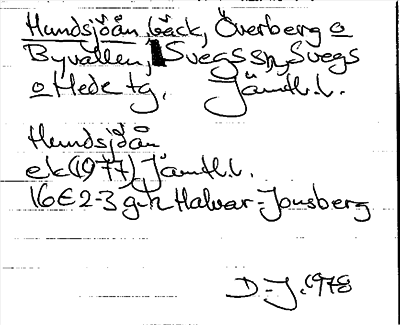 Hundsjöån, bäck, Överberg o
Byvallen, Svegs sn, Svegs
o Hede tg. Jämtl.l.
Hundsjöån
ek(1977) Jämtl.l.
16E 2-3 g-h Halvar-Jonsberg
D-J. 1978